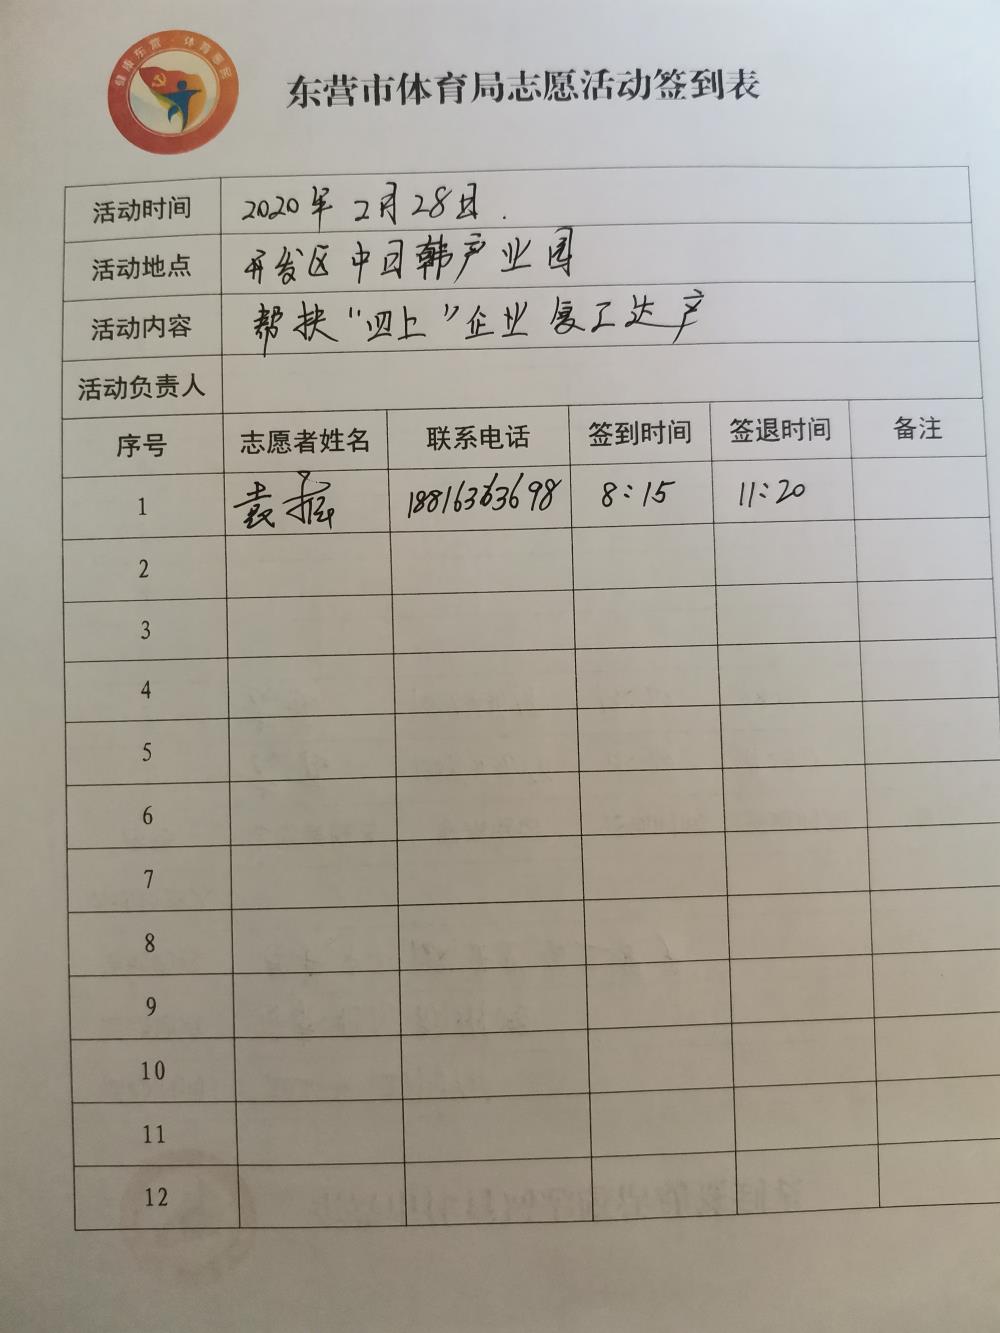 健康东营·体育惠民
东营市体育局志愿活动签到表
活动时间 2020年2月28日.
活动地点 开发区中日韩产业园
活动内容 帮扶“四上”企业复工达产
活动负责人
序号 志愿者姓名 联系电话 签到时间 签退时间 备注
1 袁 18816363698 8:15 11:20
2
3
4
5
6
7
8
9
10
11
12